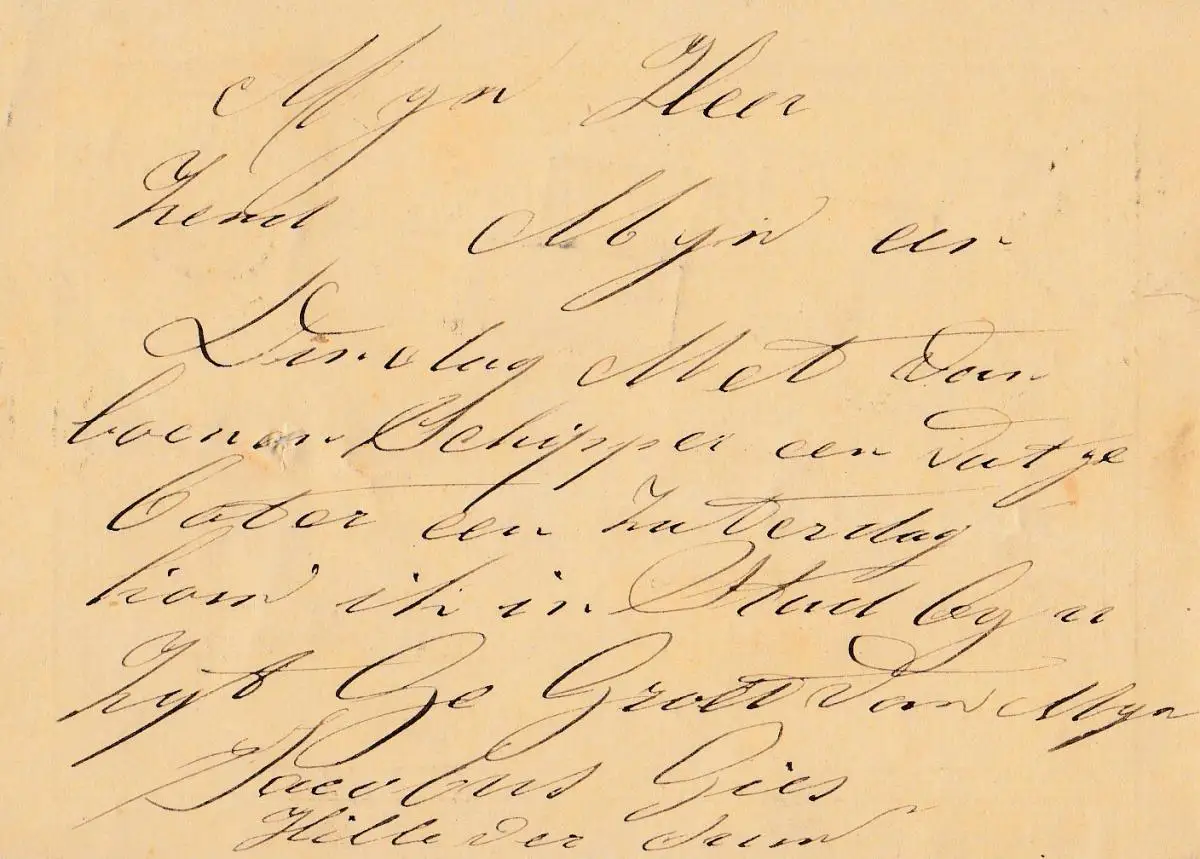 Myn Heer
Zend Myn een
Dinsdag Met Van
boenen Schipper een Vatje
boter een Zaterdag
kom ik in Stad by u
Zyt Ge Groet Van Myn
Jacobus Gies
Hille der